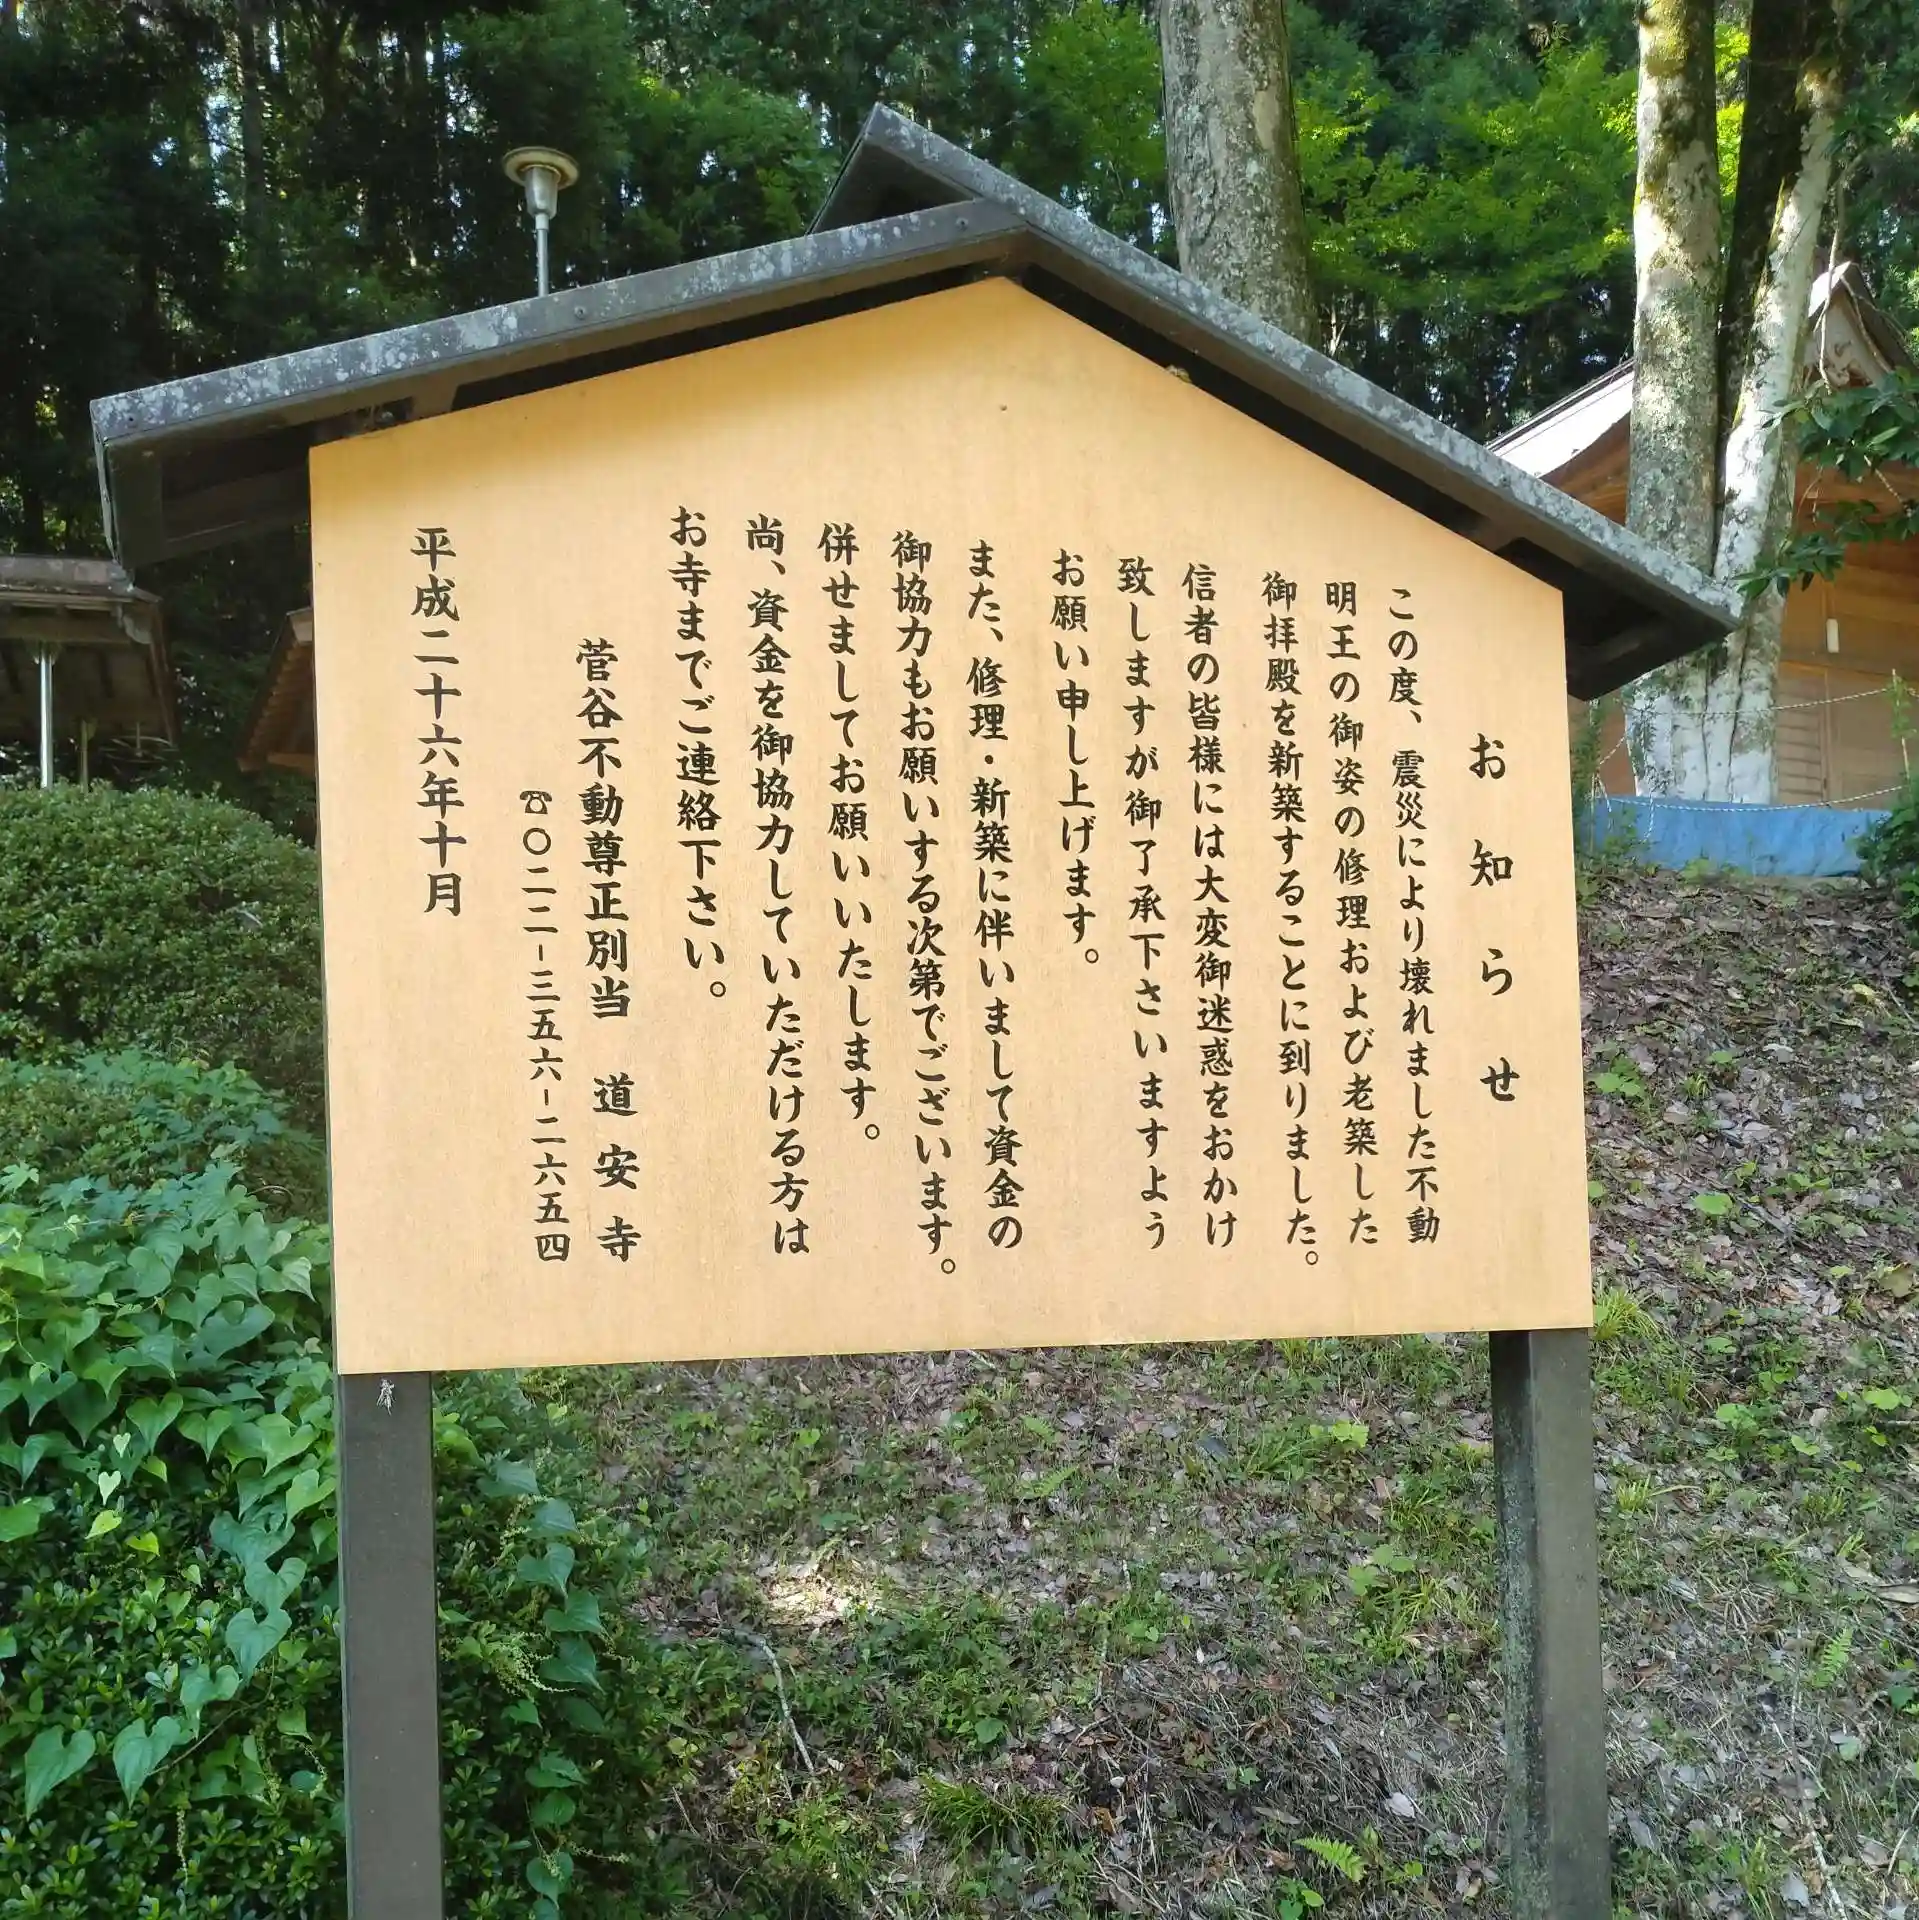 お知らせ
この度、震災により壊れました不動
明王の御姿の修理および老築した
御拝殿を新築することに到りました。
信者の皆様には大変御迷惑をおかけ
致しますが御了承下さいますよう
お願い申し上げます。
また、修理・新築に伴いまして資金の
御協力もお願いする次第でございます。
併せましてお願いいたします。
尚、資金を御協力していただける方は
お寺までご連絡下さい。
菅谷不動尊正別当 道安寺
☎〇二二－三五六－二六五四
平成二十六年十月